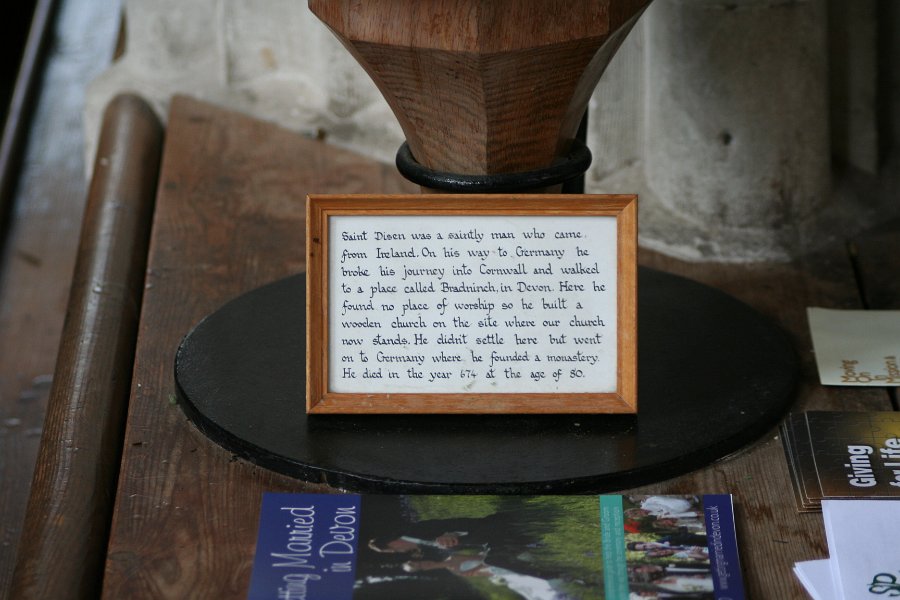 Saint Disen was a saintly man who came
from Ireland. On his way to Germany he
broke his journey into Cornwall and walked
to a place called Bradninch, in Devon. Here he
found no place of worship so he built a
wooden church on the site where our church
now stands. He didn't settle here but went
on to Germany where he founded a monastery.
He died in the year 674 at the age of 80.
Moving
On
Giving
for Life
Getting Married
in Devon